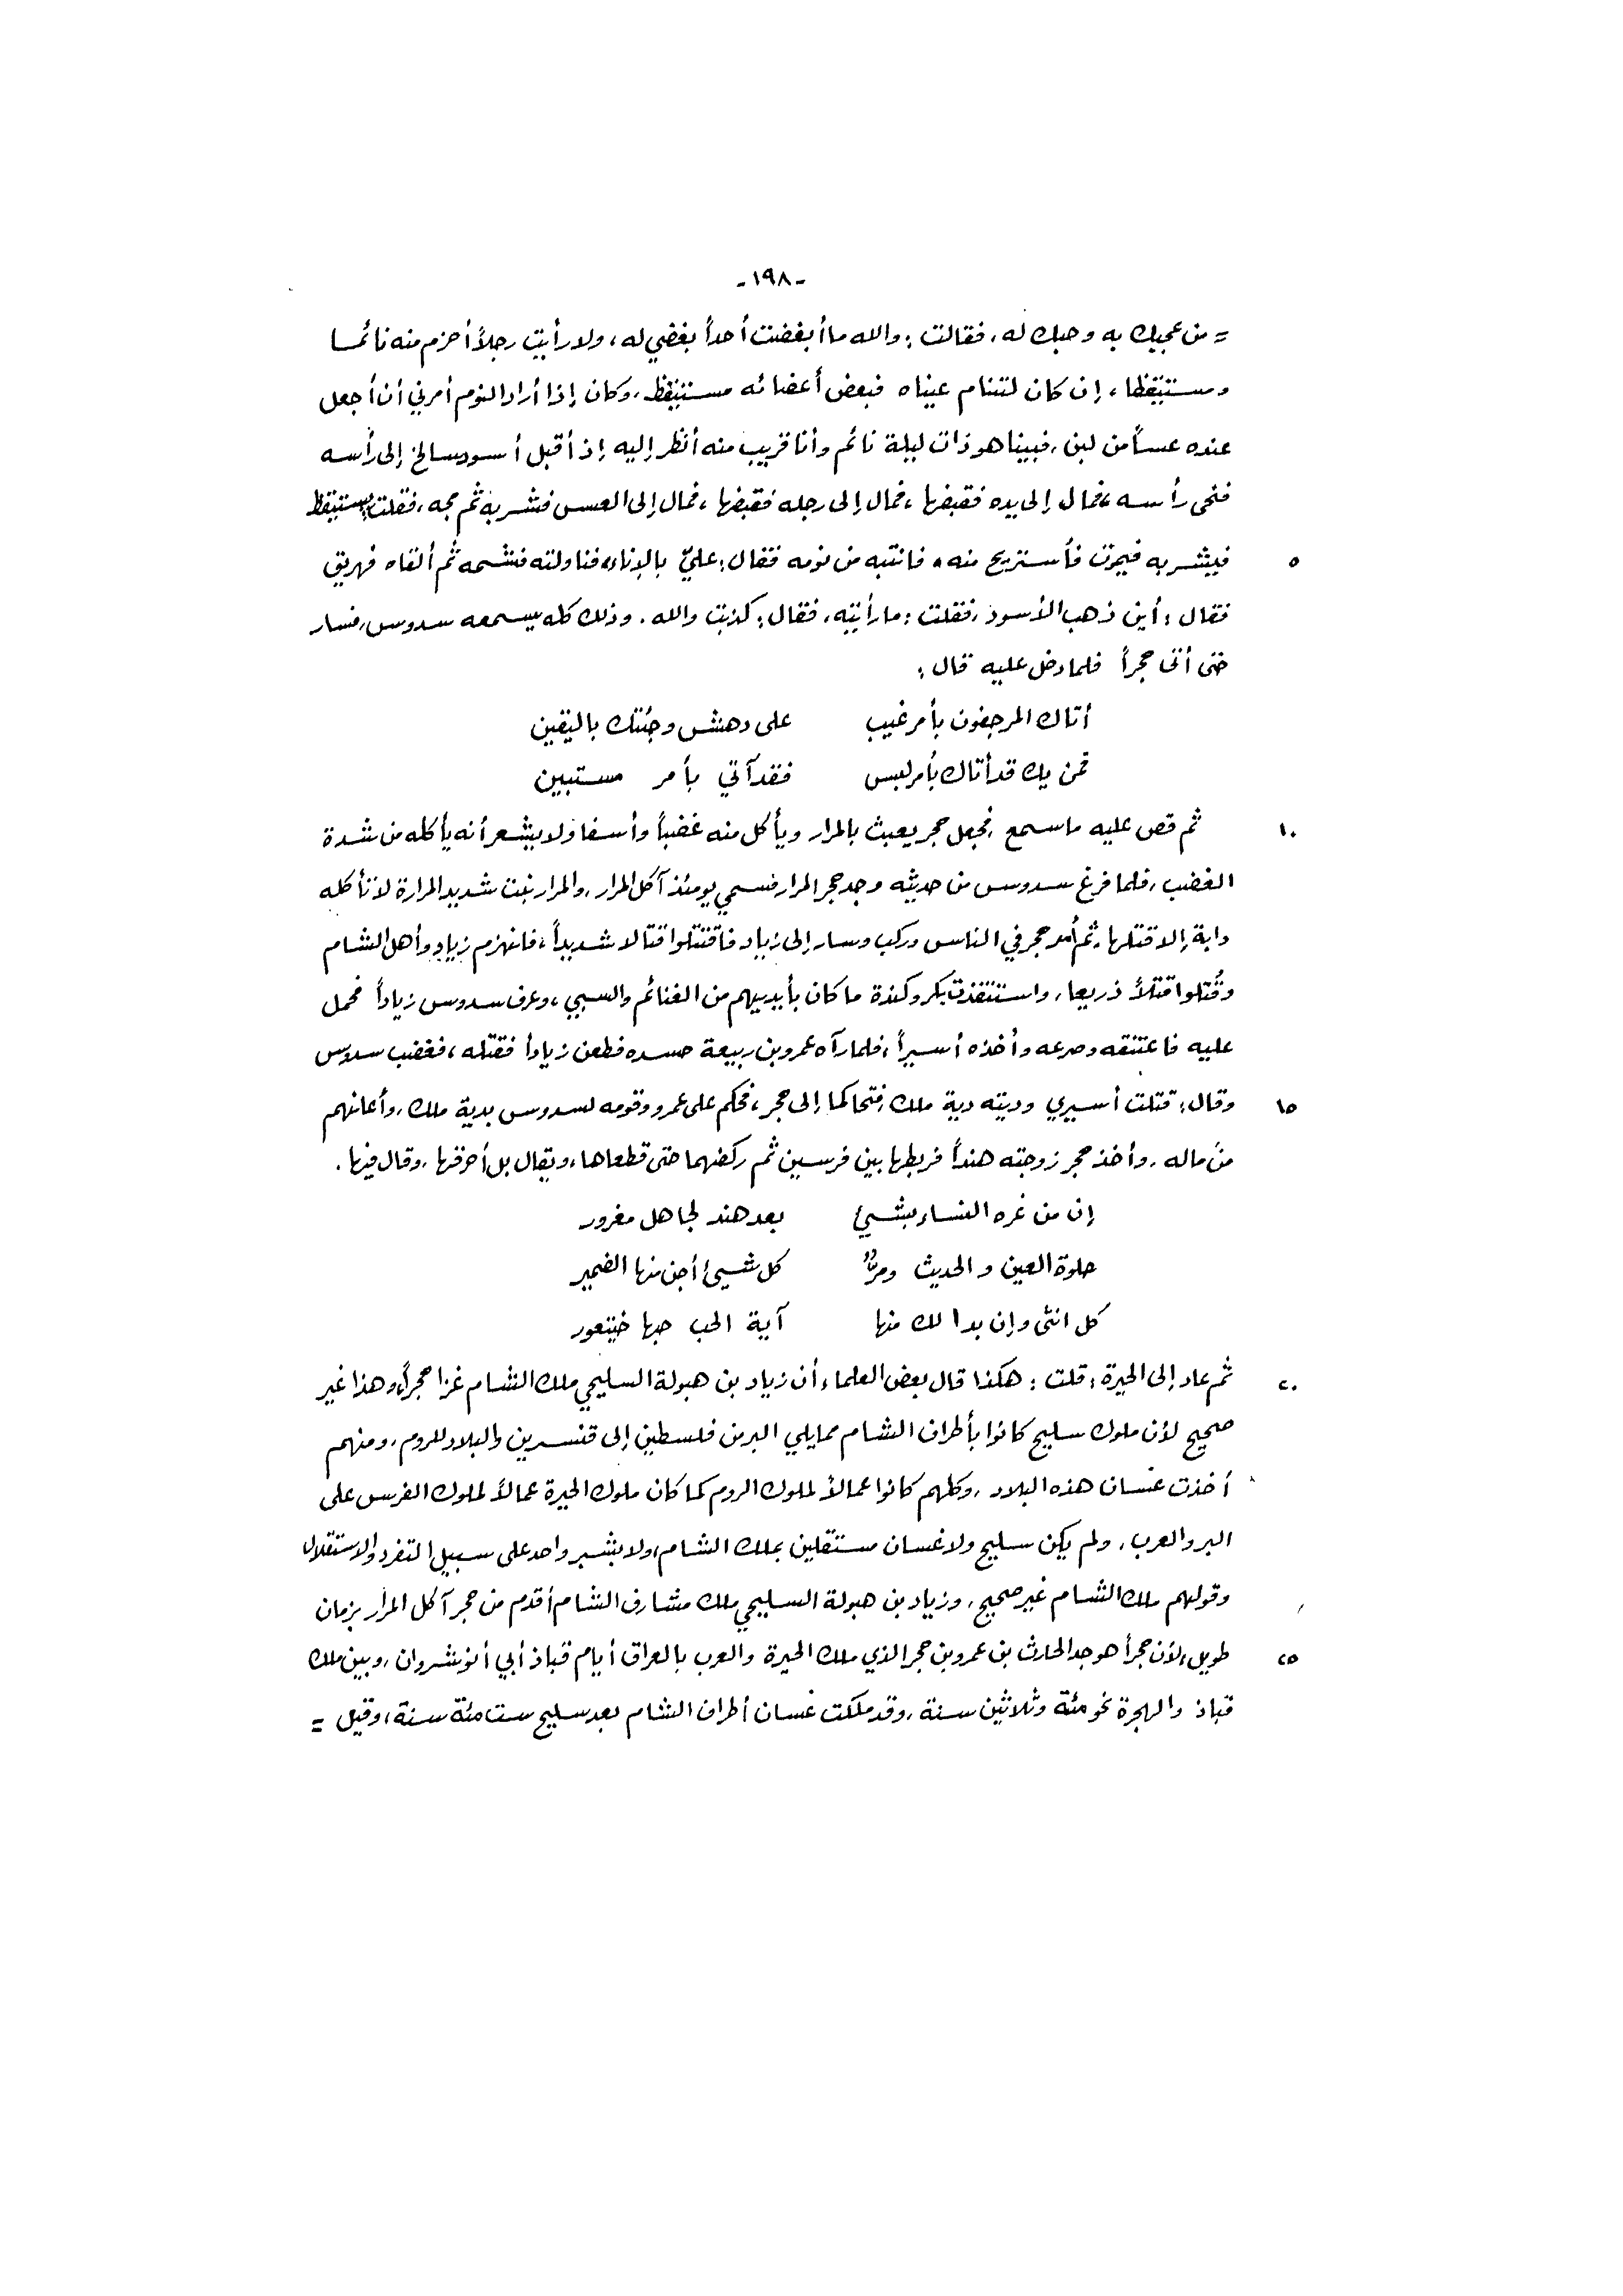 -١٩٨-
= من عجبك به وحبك له، فقالت: والله ما أبغضت أحداً بغضي له، ولا رأيت رجلاً أحزم منه نائما
ومستيقظا، إن كان لتنام عيناه فبعض أعضائه مستيقظ، وكان إذا أراد النوم أمرني أن أجعل
عنده عساً من لبن، فبينا هو ذات ليلة نائم وأنا قريب منه أنظر إليه إذ أقبل أسود سالخ إلى رأسه
فنحى رأسه، فمال إلى يده فقبضها، فمال إلى رجله فقبضها، فمال إلى العس فشربه ثم مجه، فقلت: يستيقظ
٥ فيشربه فيموت فأستريح منه، فانتبه من نومه فقال: عليّ بالإناء، فناولته فشمه ثم ألقاه فهريق
فقال: أين ذهب الأسود، فقلت: ما رأيته، فقال: كذبت والله. وذلك كله يسمعه سدوس، فسار
حتى أتى حجراً فلما دخل عليه قال:
أتاك المرجفون بأمر غيب على دهش وجئتك باليقين
فمن يك قد أتاك بأمر لبس فقد آتي بأمر مستبين
١٠ ثم قص عليه ما سمع، فجعل حجر يعبث بالمرار ويأكل منه غضباً وأسفا ولا يشعر أنه يأكله من شدة
الغضب، فلما فرغ سدوس من حديثه وجد حجر المرار فسمي يومئذ آكل المرار، والمرار نبت شديد المرارة لا تأكله
دابة إلا قتلها، ثم أمر حجر في الناس وركب وسار إلى زياد فاقتتلوا قتالا شديداً، فانهزم زياد وأهل الشام
وقُتلوا قتلاً ذريعا، واستنقذت بكر وكندة ما كان بأيديهم من الغنائم والسبي، وعرف سدوس زياداً فحمل
عليه فاعتنقه وصرعه وأخذه أسيراً، فلما رآه عمرو بن ربيعة حسده فطعن زياداً فقتله، فغضب سدوس
١٥ وقال: قتلت أسيري وديته دية ملك، فتحاكما إلى حجر، فحكم على عمرو وقومه لسدوس بدية ملك، وأعانهم
من ماله، وأخذ حجر زوجته هنداً فربطها بين فرسين ثم ركضهما حتى قطعاها، ويقال بل أحرقها، وقال فيها.
إن من غره النساء بشيئ بعد هند لجاهل مغرور
حلوة العين والحديث ومرٌّ كل شيئ أجن منها الضمير
كل انثى وإن بدا لك منها آية الحب حبها خيتعور
٢٠ ثم عاد إلى الحيرة، قلت: هكذا قال بعض العلماء أن زياد بن هبولة السليحي ملك الشام غزا حجراً، وهذا غير
صحيح لأن ملوك سليح كانوا بأطراف الشام مما يلي البر من فلسطين إلى قنسرين والبلاد للروم، ومنهم
أخذت غسان هذه البلاد، وكلهم كانوا عمالاً لملوك الروم كما كان ملوك الحيرة عمالاً لملوك الفرس على
البر والعرب، ولم يكن سليح ولا غسان مستقلين بملك الشام، ولا بشبر واحد على سبيل التفرد والاستقلال
وقولهم ملك الشام غير صحيح، وزياد بن هبولة السليحي ملك مشارف الشام أقدم من حجر آكل المرار بزمان
٢٥ طويل، لأن حجراً هو جد الحارث بن عمرو بن حجر الذي ملك الحيرة والعرب بالعراق أيام قباذ أبي أنوشروان، وبين ملك
قباذ والهجرة نحو مئة وثلاثين سنة، وقد ملكت غسان أطراف الشام بعد سليح ست مئة سنة، وقيل =